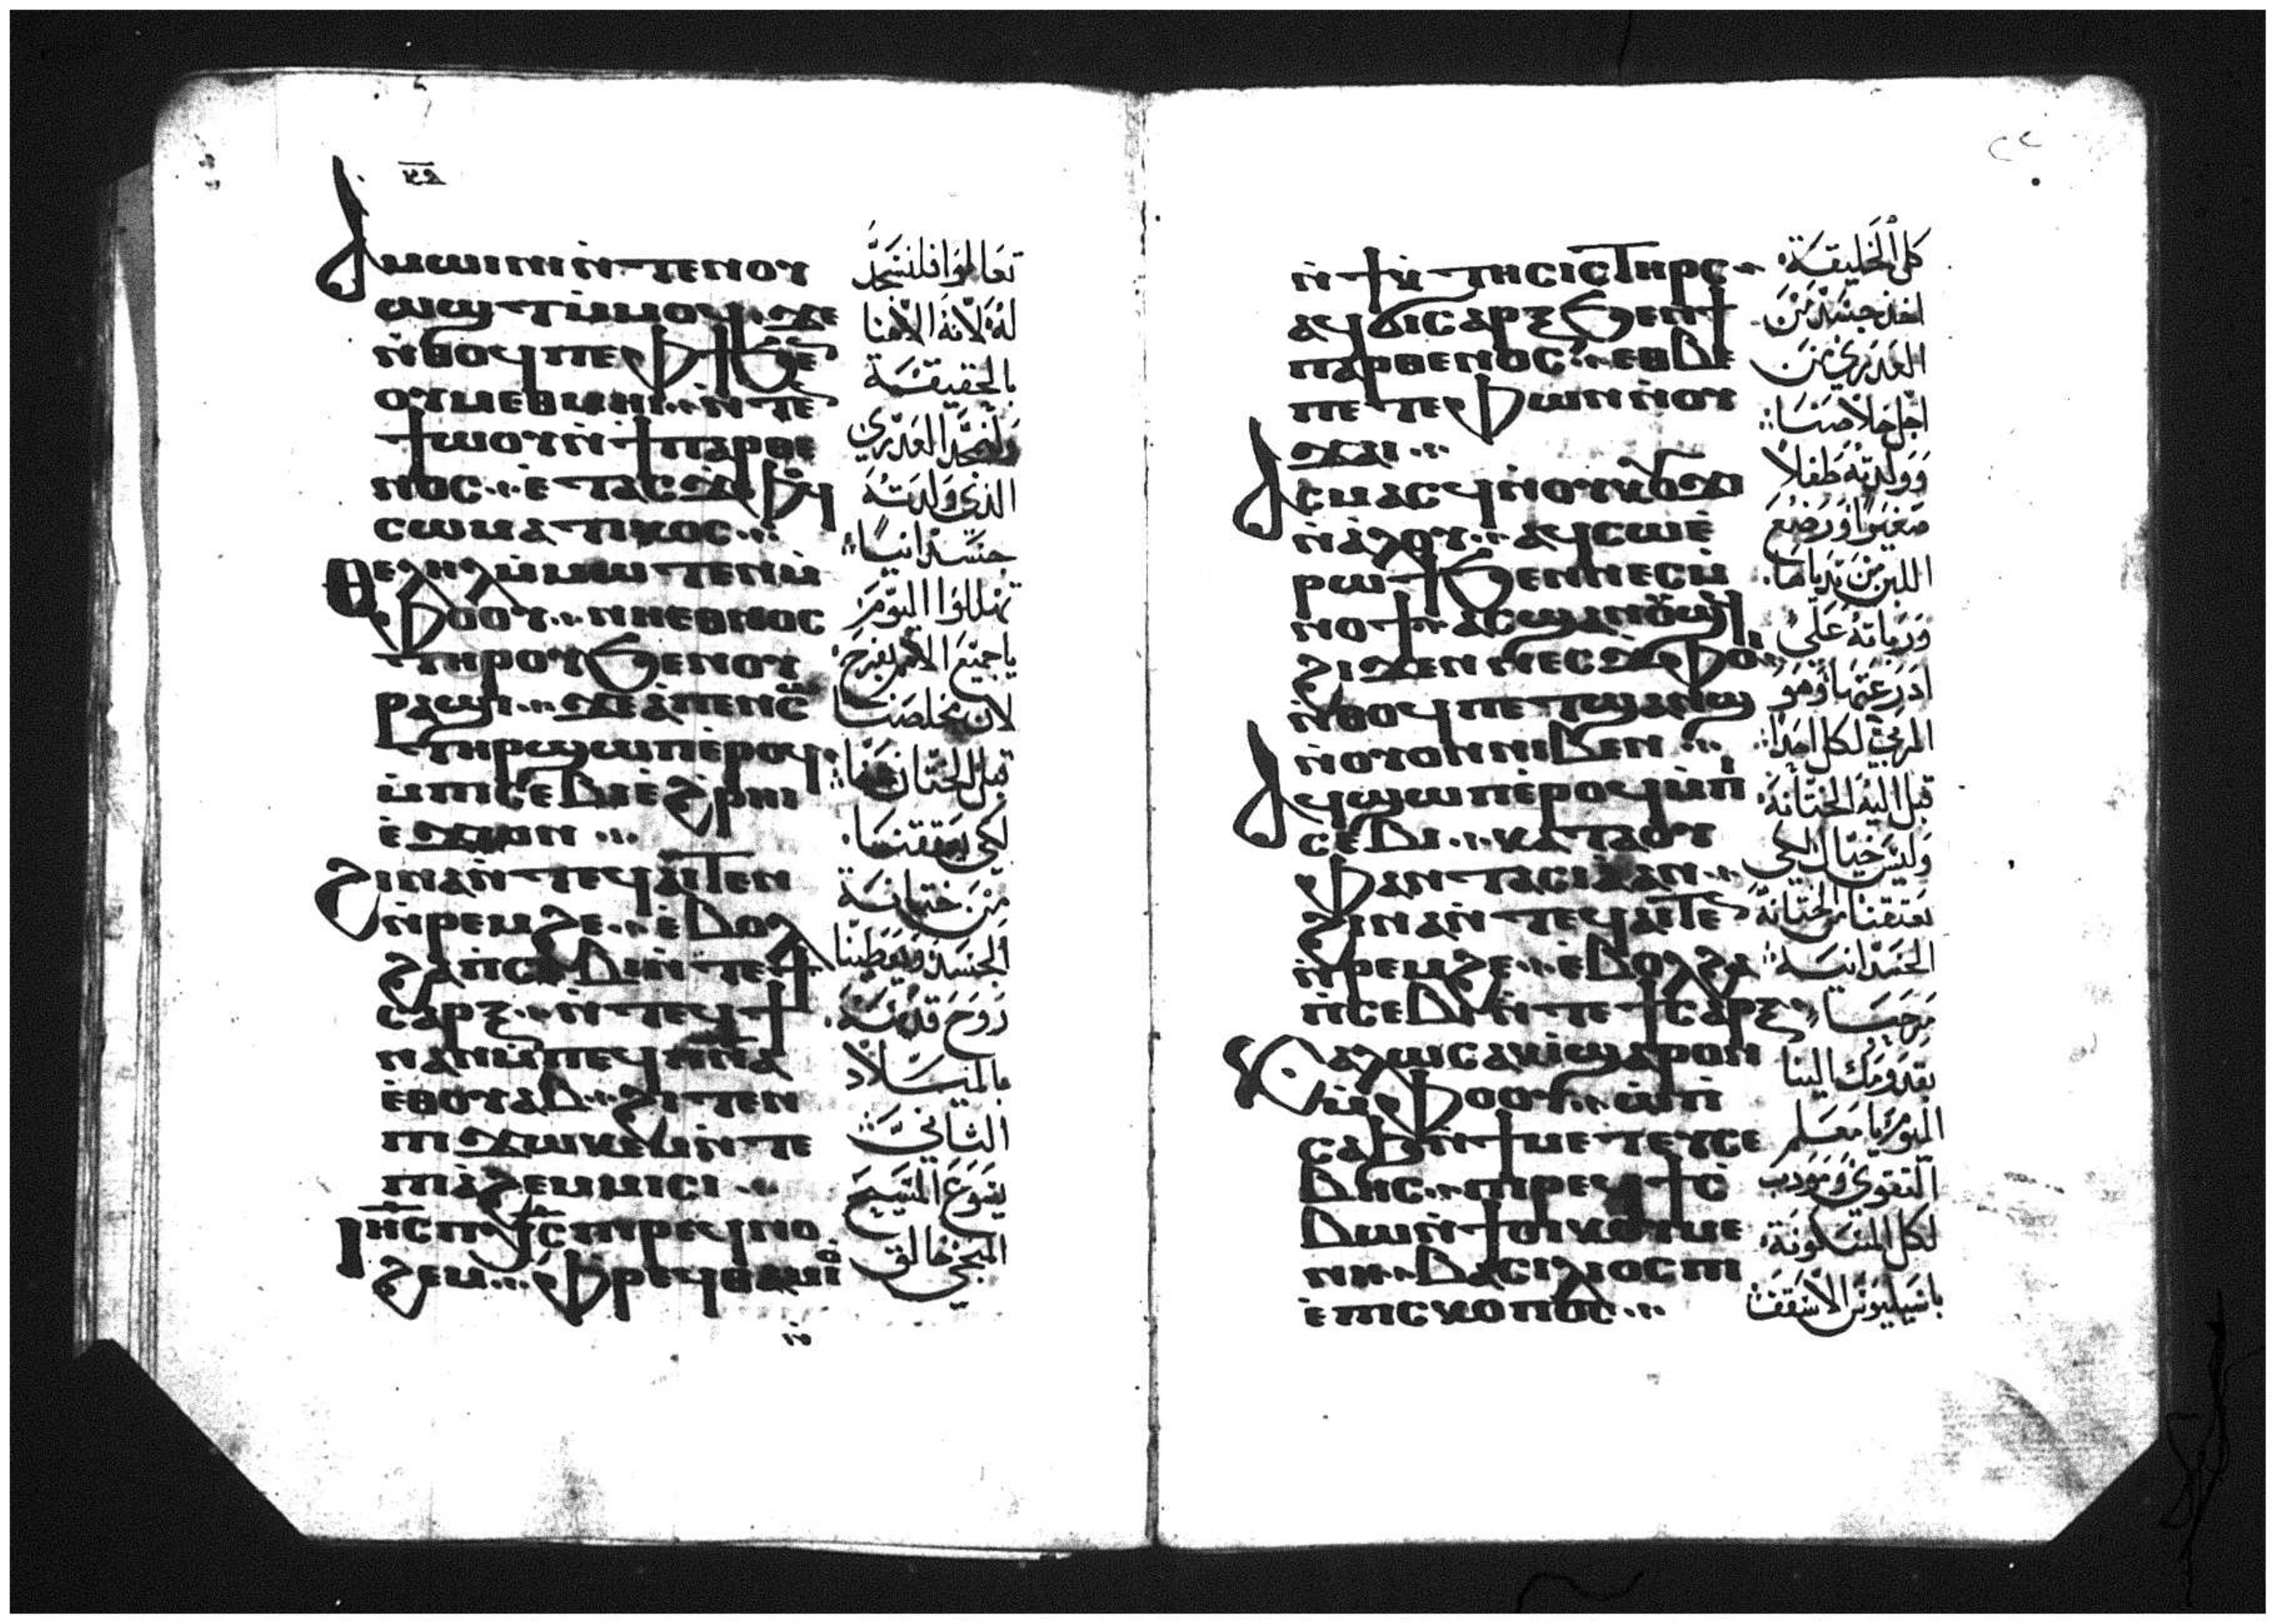 ⲁⲙⲱⲓⲛⲓ ⲛ̀ⲧⲉⲛⲟⲩ
ⲱϣⲧ ⲙ̀ⲙⲟϥ ϫⲉ
ⲛ̀ⲑⲟϥ ⲡⲉ ⲫϯ ϧⲉ
ⲟⲩⲙⲉⲑⲙⲏⲓ ⲛ̀ⲧⲉ
ϯⲱⲟⲩ ⲛ̀ϯⲡⲁⲣⲑⲉ
ⲛⲟⲥ ⲉ̀ⲧⲁⲥϫⲫⲟϥ
ⲥⲱⲙⲁⲧⲓⲕⲟⲥ
ⲑⲉⲗⲏⲗ ⲙ̀ⲙⲱⲧⲉⲛ ⲙ̀
ⲫⲟⲟⲩ ⲛⲓⲉⲑⲛⲟⲥ
ⲧⲏⲣⲟⲩ ϧⲉⲛ ⲟⲩ
ⲣⲁϣⲓ ϫⲉ ⲁ̀ⲡⲉⲛⲥⲱ
ⲧⲏⲣ ϣⲱⲡ ⲉ̀ⲣⲟϥ
ⲙ̀ⲡⲓⲥⲉⲃⲓ ⲉ̀ϩ̀ⲣⲏⲓ
ⲉ̀ϫⲱⲛ
ϩⲓⲛⲁ ⲛ̀ⲧⲉϥⲁⲓⲧⲉⲛ
ⲛ̀ⲣⲉⲙϩⲉ ⲉ̀ⲃⲟⲗ
ϩⲁ ⲡⲥⲉⲃⲓ ⲛ̀ⲧⲉ ϯ
ⲥⲁⲣⲝ ⲛ̀ⲧⲉϥϯ
ⲛⲁⲛ ⲙ̀ⲡⲉϥⲡⲛⲁ
ⲉⲑⲟⲩⲁⲃ ϩⲓⲧⲉⲛ
ⲡⲓϫⲱⲕⲉⲙ ⲛ̀ⲧⲉ
ⲡⲓⲁ̀ϩⲉⲙⲙⲓⲥⲓ
ⲓⲏⲥ ⲡⲭⲥ ⲡⲓⲣⲉϥⲛⲟ
ϩⲉⲙ ⲫⲣⲉϥⲑⲁⲙⲓⲟ̀
تعالوا فلنسجد
له لانه الاهنا
بالحقيقة
ولنمجد العدري
الذي ولدته
جسدانيا
تهللوا اليوم
يا جميع الامم بفرح
لان مخلصنا
قبل الختان عنا
لكي يعتقنا
من ختانة
الجسد ويعطينا
روح قدسه
بالميلاد
الثاني
يسوع المسيح
المنجي خالق
ⲛ̀ϯⲕ̀ⲧⲏⲥⲓⲥ ⲧⲏⲣⲥ
ⲁϥϭⲓⲥⲁⲣⲝ ϧⲉⲛ ϯ
ⲡⲁⲣⲑⲉⲛⲟⲥ ⲉⲑⲃⲉ
ⲡⲉⲧⲉⲫⲱⲛ ⲛ̀ⲟⲩ
ϫⲁⲓ
ⲁⲥⲙⲁⲥϥ ⲛ̀ⲟⲩⲕⲟⲩϫⲓ
ⲛ̀ⲁ̀ⲗⲟⲩ ⲁϥⲥⲱ ⲉ̀
ⲣⲱϯ ϧⲉⲛ ⲛⲉⲥⲙ̀
ⲛⲟϯ ⲁⲥϣⲁⲛⲟⲩϣϥ
ϩⲓϫⲉⲛ ⲛⲉⲥϫⲫⲟⲓ
ⲛ̀ⲑⲟϥ ⲡⲉⲧϣⲁⲛϣ
ⲛ̀ⲟⲩⲟⲛ ⲛⲓⲃⲉⲛ
ⲁϥϣⲱⲡ ⲉ̀ⲣⲟϥ ⲙ̀ⲡⲓ
ⲥⲉⲃⲓ ⲕⲁⲧⲁ ⲟⲩ
ⲫⲁⲛⲧⲁⲥⲓⲁ ⲁⲛ
ϩⲓⲛⲁ ⲛ̀ⲧⲉϥⲁⲓⲧⲉⲛ
ⲛ̀ⲣⲉⲙϩⲉ ⲉ̀ⲃⲟⲗ ϩⲁ
ⲡⲥⲉⲃⲓ ⲛ̀ⲧⲉ ϯⲥⲁⲣⲝ
ⲕⲁⲗⲱⲥ ⲁⲕⲓ̀ ϣⲁⲣⲟⲛ
ⲙ̀ⲫⲟⲟⲩ ⲱ̀ ⲡⲓ
ⲥⲁϧ ⲛ̀ϯⲙⲉⲧⲉⲩⲥⲉ
ⲃⲏⲥ ⲡⲓⲣⲉϥϯⲥ̀
ⲃⲱ ⲛ̀ϯⲟⲓⲕⲟⲩⲙⲉ
ⲛⲏ ⲃⲁⲥⲓⲗⲓⲟⲥ ⲡⲓ
ⲉ̀ⲡⲓⲥⲕⲟⲡⲟⲥ
كل الخليقة
اخذ جسد من
العدري من
اجل خلاصنا
وولدته طفلا
صغيرا ورضع
اللبن من ثدياها
وربته علي
ادرعتها وهو
المربي لكل احد
قبل اليه الختانة
وليس خيال لكي
يعتقنا من الختانة
الجسدانية
مرحبا
بقدومك الينا
اليوم يا معلم
التقوي ومودب
لكل المسكونة
باسيليوس الاسقف